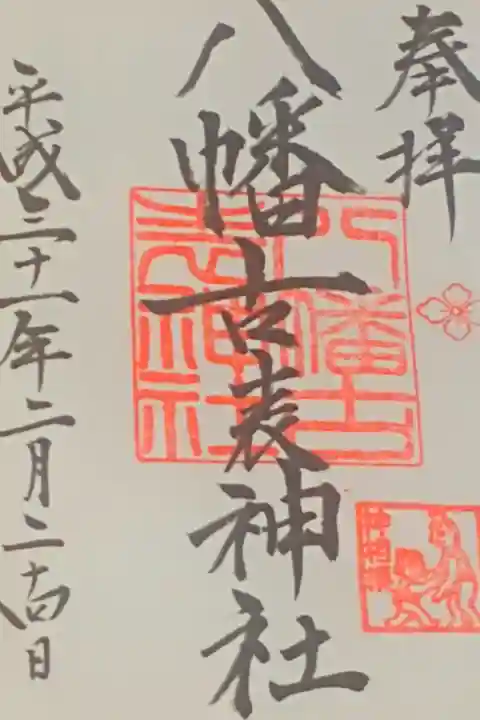 奉拝
八幡古表神社
平成三十一年二月二十四日
八幡古
表神社
神相撲